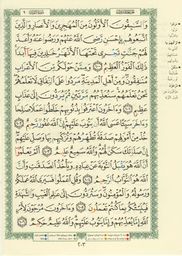 وَالسَّابِقُونَ الْأَوَّلُونَ مِنَ الْمُهَاجِرِينَ وَالْأَنصَارِ وَالَّذِينَ
اتَّبَعُوهُم بِإِحْسَانٍ رَّضِيَ اللَّهُ عَنْهُمْ وَرَضُوا عَنْهُ وَأَعَدَّ
لَهُمْ جَنَّاتٍ تَجْرِي تَحْتَهَا الْأَنْهَارُ خَالِدِينَ فِيهَا أَبَدًا
ذَٰلِكَ الْفَوْزُ الْعَظِيمُ ١٠٠ وَمِمَّنْ حَوْلَكُم مِّنَ الْأَعْرَابِ
مُنَافِقُونَ وَمِنْ أَهْلِ الْمَدِينَةِ مَرَدُوا عَلَى النِّفَاقِ لَا تَعْلَمُهُمْ
نَحْنُ نَعْلَمُهُمْ سَنُعَذِّبُهُم مَّرَّتَيْنِ ثُمَّ يُرَدُّونَ إِلَىٰ عَذَابٍ
عَظِيمٍ ١٠١ وَآخَرُونَ اعْتَرَفُوا بِذُنُوبِهِمْ خَلَطُوا عَمَلًا صَالِحًا
وَآخَرَ سَيِّئًا عَسَى اللَّهُ أَن يَتُوبَ عَلَيْهِمْ إِنَّ اللَّهَ غَفُورٌ رَّحِيمٌ ١٠٢
خُذْ مِنْ أَمْوَالِهِمْ صَدَقَةً تُطَهِّرُهُمْ وَتُزَكِّيهِم بِهَا وَصَلِّ عَلَيْهِمْ
إِنَّ صَلَاتَكَ سَكَنٌ لَّهُمْ وَاللَّهُ سَمِيعٌ عَلِيمٌ ١٠٣ أَلَمْ يَعْلَمُوا
أَنَّ اللَّهَ هُوَ يَقْبَلُ التَّوْبَةَ عَنْ عِبَادِهِ وَيَأْخُذُ الصَّدَقَاتِ وَأَنَّ
اللَّهَ هُوَ التَّوَّابُ الرَّحِيمُ ١٠٤ وَقُلِ اعْمَلُوا فَسَيَرَى اللَّهُ عَمَلَكُمْ
وَرَسُولُهُ وَالْمُؤْمِنُونَ وَسَتُرَدُّونَ إِلَىٰ عَالِمِ الْغَيْبِ وَالشَّهَادَةِ
فَيُنَبِّئُكُم بِمَا كُنتُمْ تَعْمَلُونَ ١٠٥ وَآخَرُونَ مُرْجَوْنَ لِأَمْرِ
اللَّهِ إِمَّا يُعَذِّبُهُمْ وَإِمَّا يَتُوبُ عَلَيْهِمْ وَاللَّهُ عَلِيمٌ حَكِيمٌ ١٠٦
٢٠٣